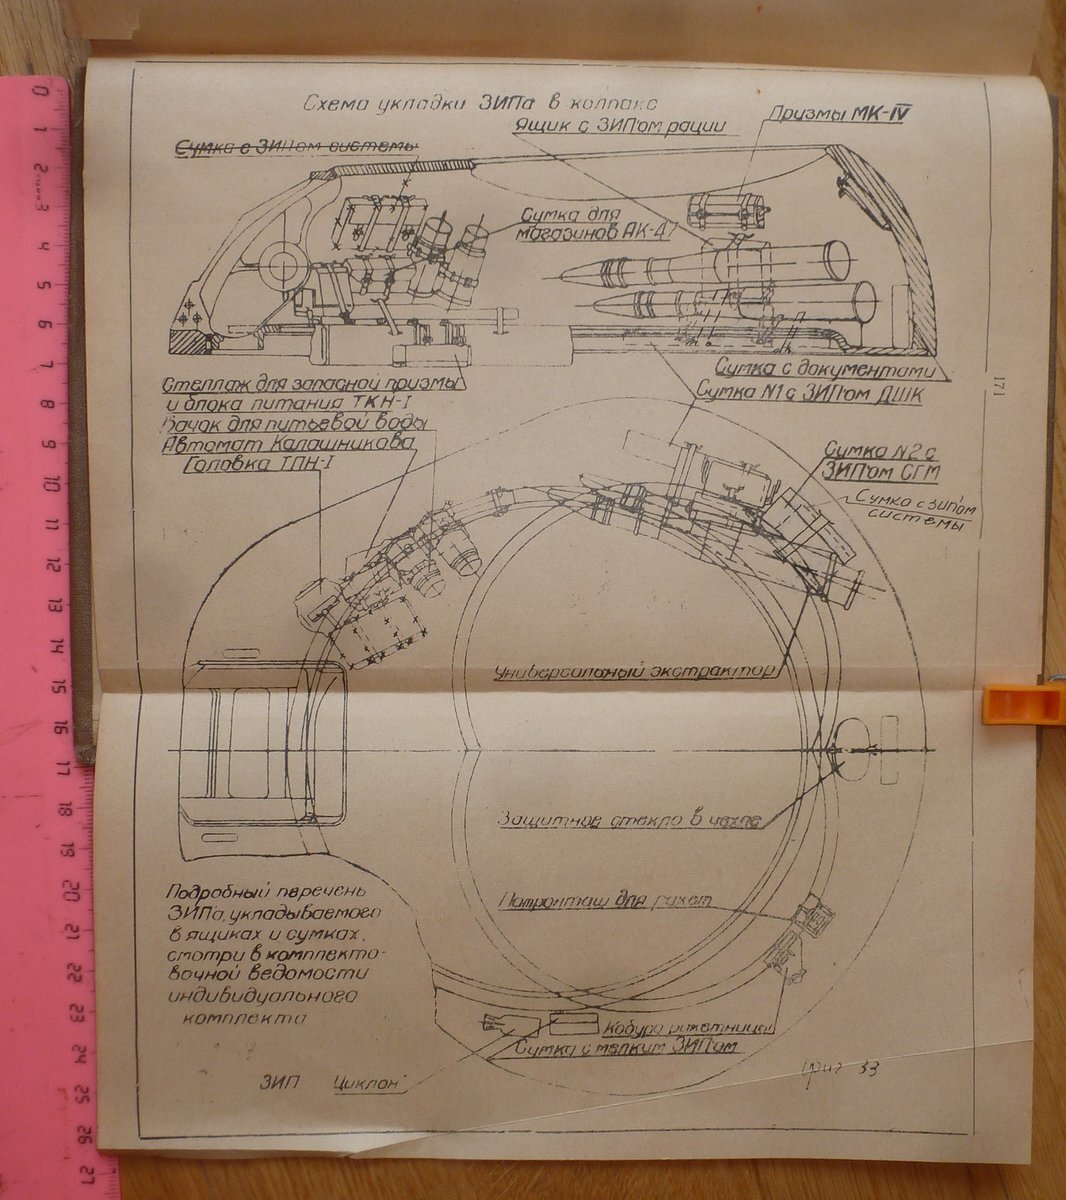 Схема укладки ЗИПа в колпаке
Ящик с ЗИПом рации
Призмы МК-IV
Сумка с ЗИПом системы
Сумка для
магазинов АК-47
Сумка с документами
Сумка N1 с ЗИПом ДШК
Стеллаж для запасной призмы
и блока питания ТКН-I
Бачок для питьевой воды
Автомат Калашникова
Головка ТПН-I
171
Сумка N2 с
ЗИПом СГМ
Сумка с зипом
системы
Универсальный экстрактор
Защитное стекло в чехле
Патронташ для ракет
Подробный перечень
ЗИПа, укладываемого
в ящиках и сумках,
смотри в комплекто-
вочной ведомости
индивидуального
комплекта
Кобура ракетницы
Сумка с мелким ЗИПом
ЗИП Циклон
фиг 33
0
1
2
3
4
5
6
7
8
9
10
11
12
13
14
15
16
17
18
19
20
21
22
23
24
25
26
27